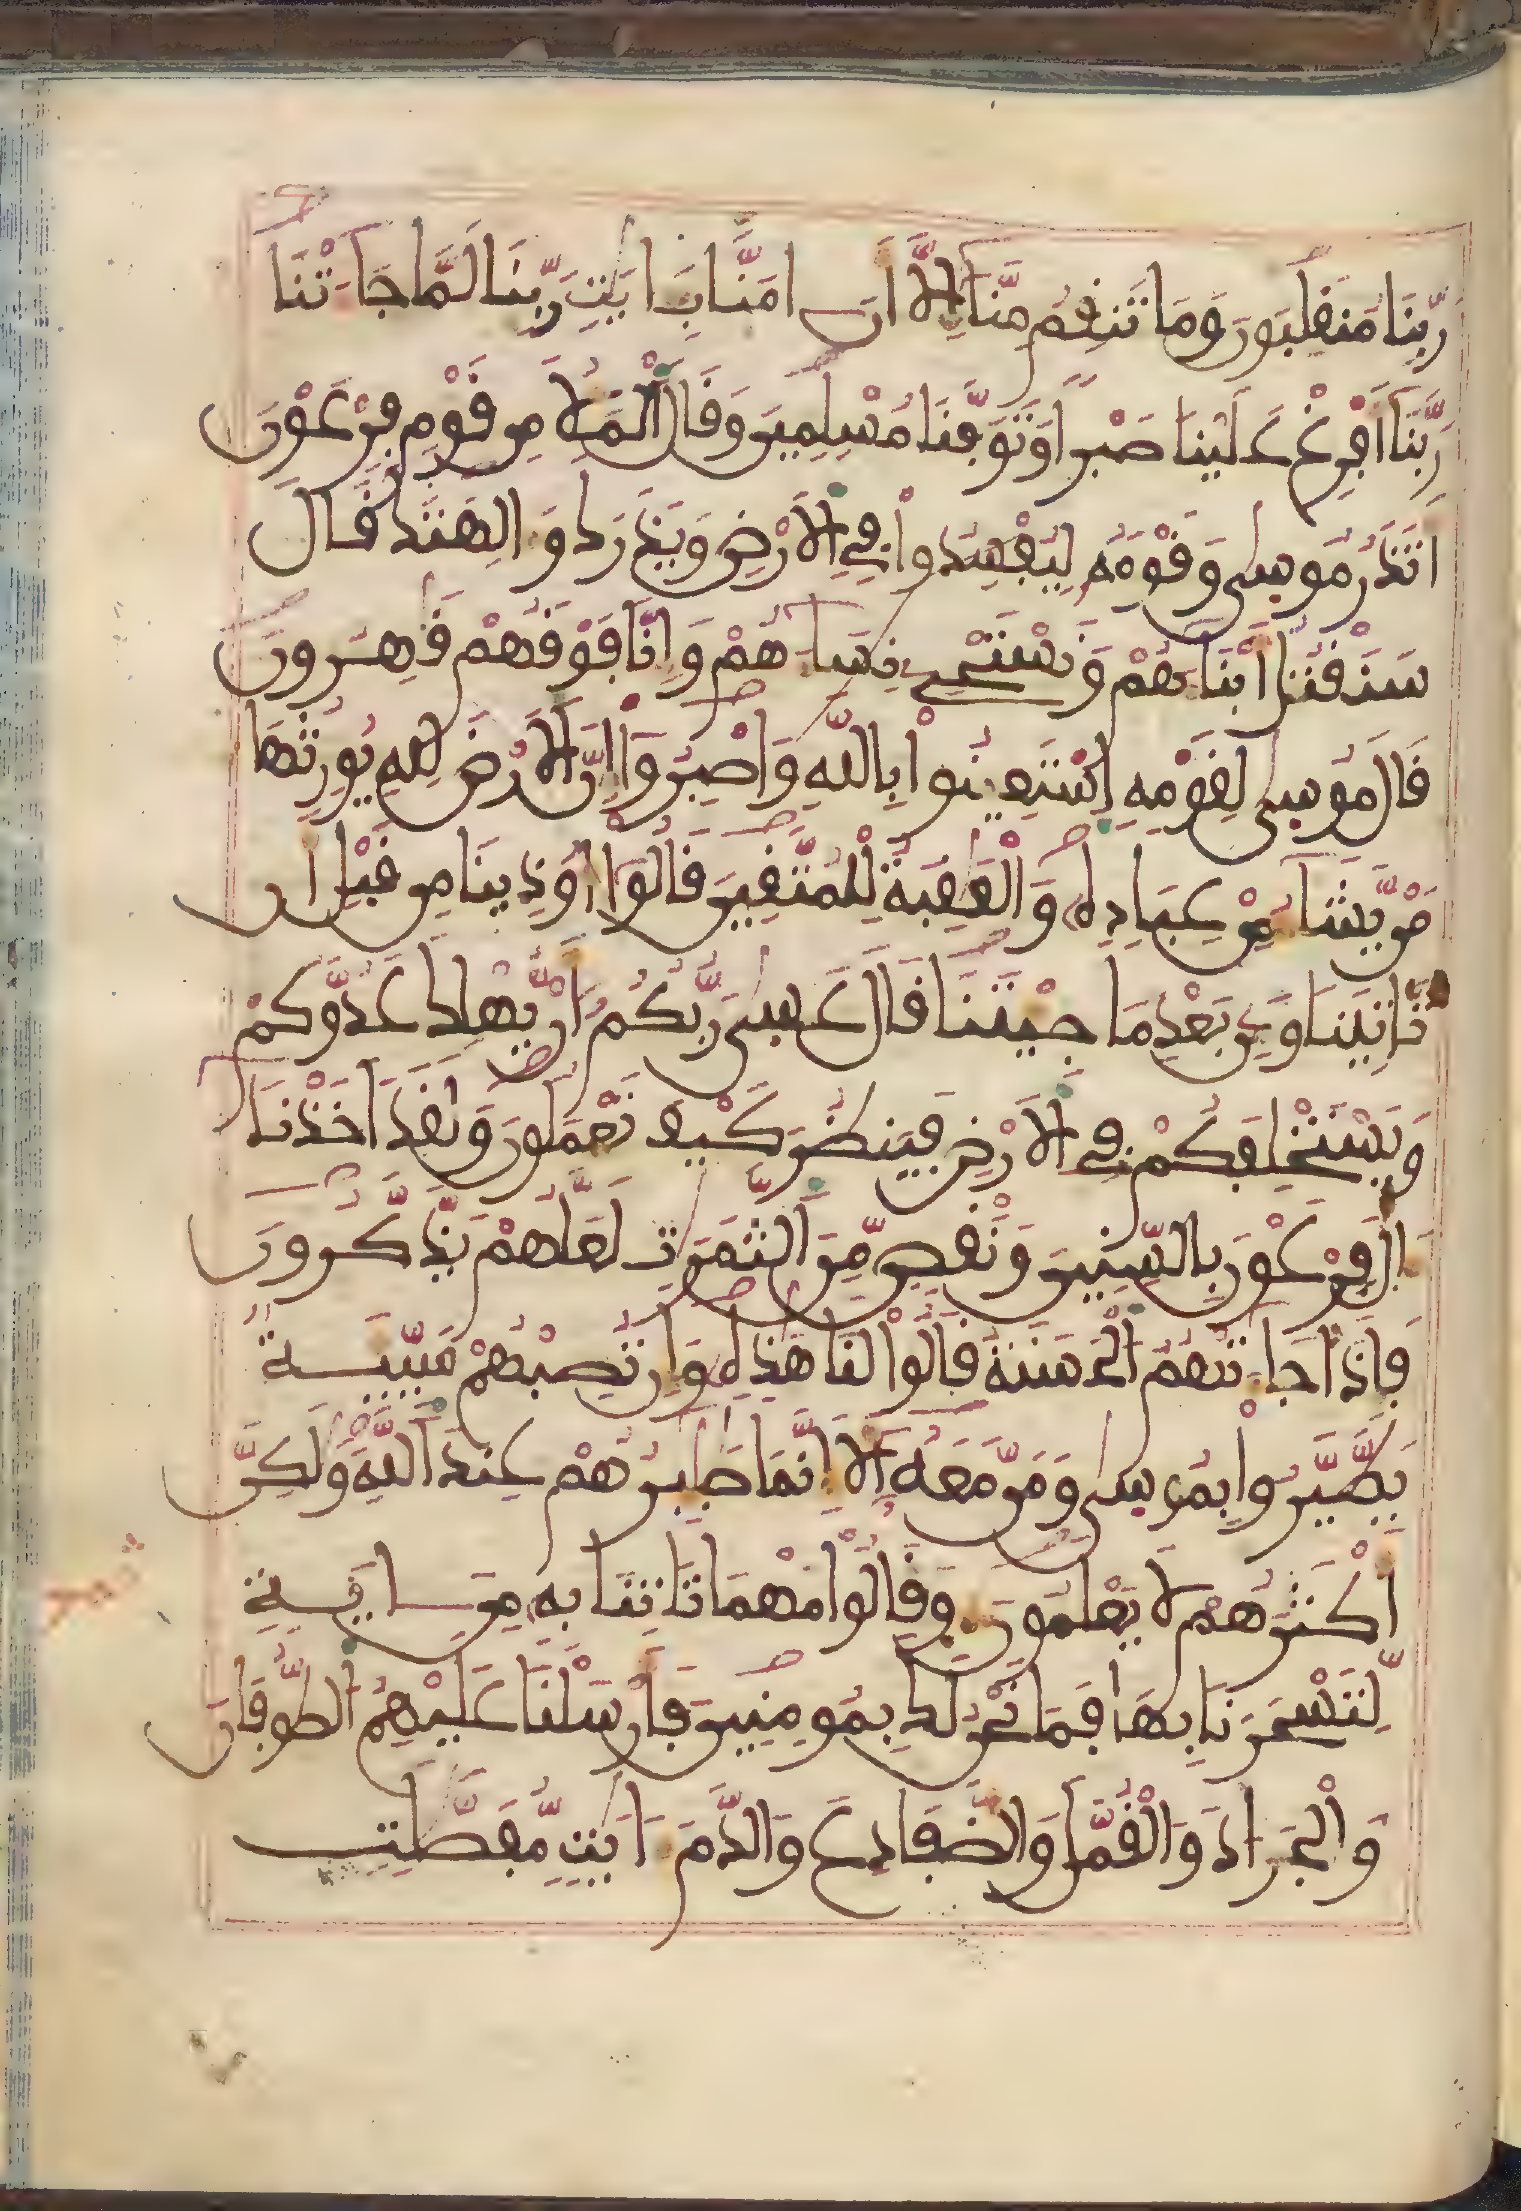 رَبِّنَا مُنقَلِبُونَ وَمَا تَنقِمُ مِنَّا إِلَّا أَنَ امَنَّا بِـَٔايَٰتِ رَبِّنَا لَمَّا جَآءَتْنَا
رَبَّنَا أَفْرِغْ عَلَيْنَا صَبْرًا وَتَوَفَّنَا مُسْلِمِينَ وَقَالَ الْمَلَأُ مِن قَوْمِ فِرْعَوْنَ
أَتَذَرُ مُوسَىٰ وَقَوْمَهُ لِيُفْسِدُوا فِي الْأَرْضِ وَيَذَرَكَ وَءَالِهَتَكَ قَالَ
سَنَقْتُلُ أَبْنَآءَهُمْ وَنَسْتَحْيِۦ نِسَآءَهُمْ وَإِنَّا فَوْقَهُمْ قَٰهِرُونَ
قَالَ مُوسَىٰ لِقَوْمِهِ اِسْتَعِينُوا بِاللَّهِ وَاصْبِرُوا إِنَّ الْأَرْضَ لِلَّهِ يُورِثُهَا
مَنْ يَّشَآءُ مِنْ عِبَادِهِ وَالْعَٰقِبَةُ لِلْمُتَّقِينَ قَالُوا أُوذِينَا مِن قَبْلِ أَن
تَاتِيَنَا وَمِنۢ بَعْدِ مَا جِيْتَنَا قَالَ عَسَىٰ رَبُّكُمُ أَنْ يُّهْلِكَ عَدُوَّكُمْ
وَيَسْتَخْلِفَكُمْ فِي الْأَرْضِ فَيَنظُرَ كَيْفَ تَعْمَلُونَ وَلَقَدَ اَخَذْنَا
ءَالَ فِرْعَوْنَ بِالسِّنِينَ وَنَقْصٍ مِّنَ الثَّمَرَٰتِ لَعَلَّهُمْ يَذَّكَّرُونَ
فَإِذَا جَآءَتْهُمُ الْحَسَنَةُ قَالُوا لَنَا هَٰذِهِ وَإِن تُصِبْهُمْ سَيِّئَةٌ
يَطَّيَّرُوا بِمُوسَىٰ وَمَن مَّعَهُ أَلَا إِنَّمَا طَٰٓئِرُهُمْ عِندَ اللَّهِ وَلَٰكِنَّ
أَكْثَرَهُمْ لَا يَعْلَمُونَ وَقَالُوا مَهْمَا تَاتِنَا بِهِ مِنَ ايَةٍ
لِّتَسْحَرَنَا بِهَا فَمَا نَحْنُ لَكَ بِمُومِنِينَ فَأَرْسَلْنَا عَلَيْهِمُ الطُّوفَانَ
وَالْجَرَادَ وَالْقُمَّلَ وَالضَّفَادِعَ وَالدَّمَ ءَايَٰتٍ مُّفَصَّلَٰتٍ